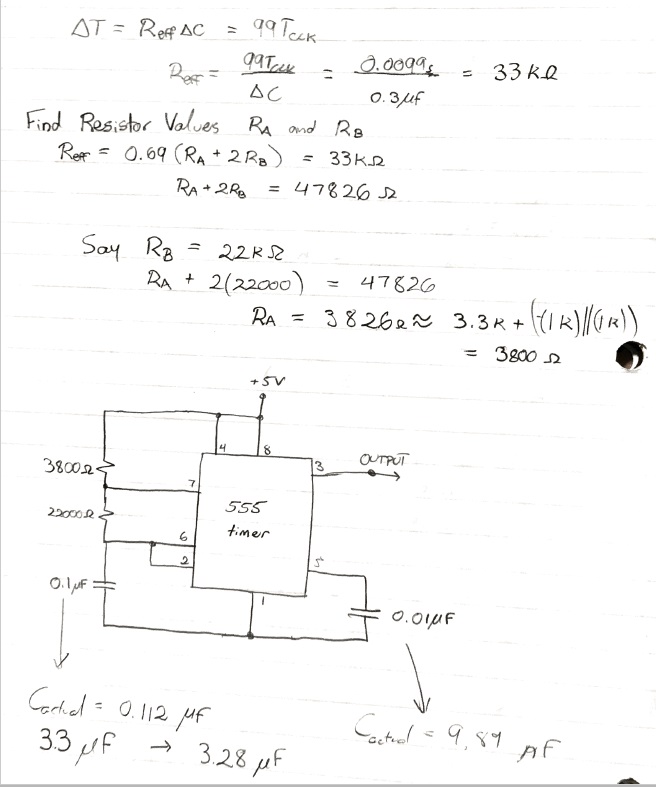 ΔT = Reff ΔC = 99TCLK
Reff = 99TCLK / ΔC = 0.0099s / 0.3μf = 33 kΩ
Find Resistor Values RA and RB
Reff = 0.69 (RA + 2RB) = 33kΩ
RA + 2RB = 47826 Ω
Say RB = 22kΩ
RA + 2(22000) = 47826
RA = 3826Ω ≈ 3.3k + ((1k)||(1k))
= 3800 Ω
+5V
4 8
3 OUTPUT
3800Ω
7
22000Ω
555
timer
6
2
5
0.1μF
1
0.01μF
Cactual = 0.112 μF
3.3 μF → 3.28 μF
Cactual = 9.89